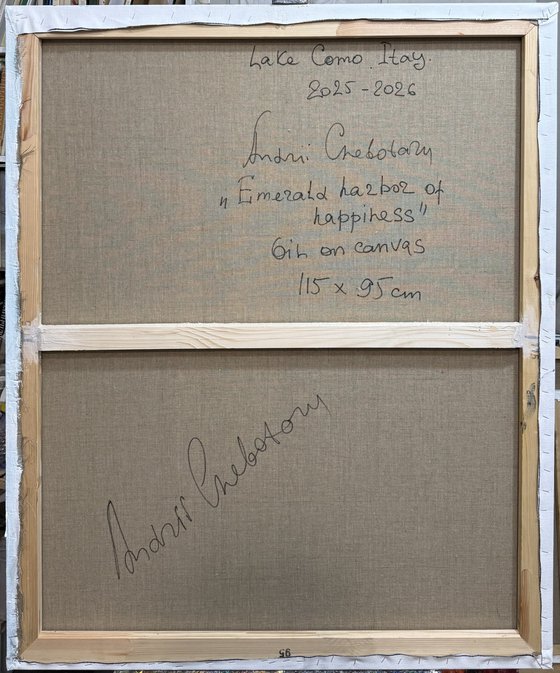 Lake Como. Itay.
2025-2026
Andrii Chebotary
„Emerald harbor of
happiness"
Oil on canvas
115 x 95 cm
Andrii Chebotary
95